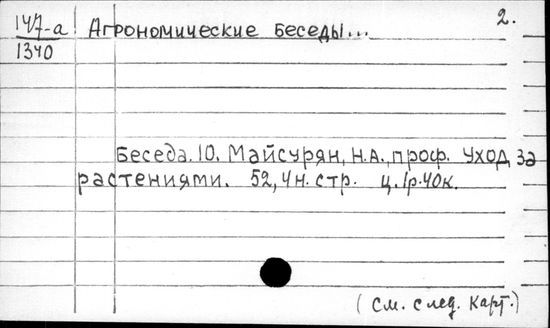 147-а Агрономические беседы...
2.
1340
Беседа.10. Майсурян, Н.А., проф. Уход за
растениями. 52, 4н. стр. ц. 1р.40к.
(См. след. карт.)